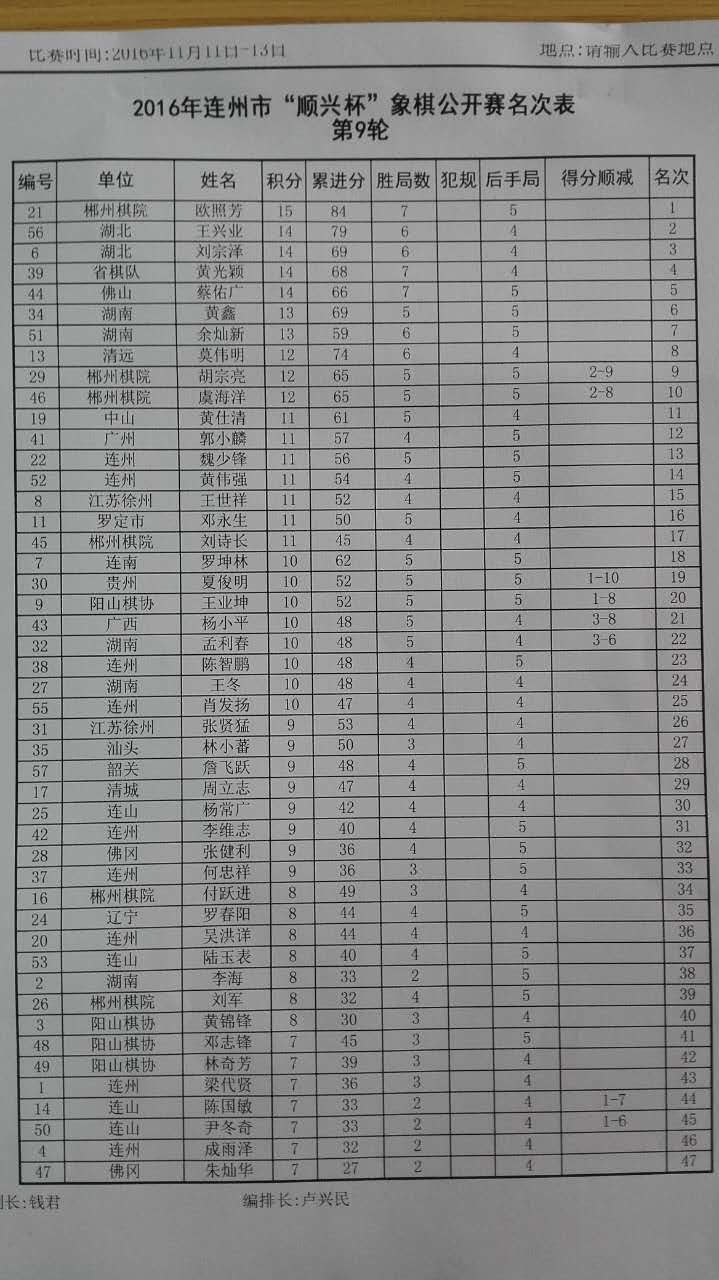 比赛时间:2016年11月11日-13日 地点:请输入比赛地点
2016年连州市“顺兴杯”象棋公开赛名次表
第9轮
编号 单位 姓名 积分 累进分 胜局数 犯规 后手局 得分顺减 名次
21 郴州棋院 欧照芳 15 84 7 5 1
56 湖北 王兴业 14 79 6 4 2
6 湖北 刘宗泽 14 69 6 4 3
39 省棋队 黄光颖 14 68 7 4 4
44 佛山 蔡佑广 14 66 7 5 5
34 湖南 黄鑫 13 69 5 5 6
51 湖南 余灿新 13 59 6 5 7
13 清远 莫伟明 12 74 6 4 8
29 郴州棋院 胡宗亮 12 65 5 5 2-9 9
46 郴州棋院 虞海洋 12 65 5 5 2-8 10
19 中山 黄仕清 11 61 5 4 11
41 广州 郭小麟 11 57 4 5 12
22 连州 魏少锋 11 56 5 5 13
52 连州 黄伟强 11 54 4 5 14
8 江苏徐州 王世祥 11 52 4 4 15
11 罗定市 邓永生 11 50 5 4 16
45 郴州棋院 刘诗长 11 45 4 4 17
7 连南 罗坤林 10 62 5 5 18
30 贵州 夏俊明 10 52 5 5 1-10 19
9 阳山棋协 王业坤 10 52 5 5 1-8 20
43 广西 杨小平 10 48 5 4 3-8 21
32 湖南 孟利春 10 48 5 4 3-6 22
38 连州 陈智鹏 10 48 4 5 23
27 湖南 王冬 10 48 4 4 24
55 连州 肖发扬 10 47 4 4 25
31 江苏徐州 张贤猛 9 53 4 4 26
35 汕头 林小蕃 9 50 3 4 27
57 韶关 詹飞跃 9 48 4 5 28
17 清城 周立志 9 47 4 4 29
25 连山 杨常广 9 42 4 4 30
42 连州 李维志 9 40 4 5 31
28 佛冈 张健利 9 36 4 5 32
37 连州 何忠祥 9 36 3 5 33
16 郴州棋院 付跃进 8 49 3 4 34
24 辽宁 罗春阳 8 44 4 5 35
20 连州 吴洪详 8 44 4 4 36
53 连山 陆玉表 8 40 4 5 37
2 湖南 李海 8 33 2 5 38
26 郴州棋院 刘军 8 32 4 5 39
3 阳山棋协 黄锦锋 8 30 3 4 40
48 阳山棋协 邓志锋 7 45 3 5 41
49 阳山棋协 林奇芳 7 39 3 4 42
1 连州 梁代贤 7 36 3 4 43
14 连山 陈国敏 7 33 2 4 1-7 44
50 连山 尹冬奇 7 33 2 4 1-6 45
4 连州 成雨泽 7 32 2 4 46
47 佛冈 朱灿华 7 27 2 4 47
长:钱君 编排长:卢兴民